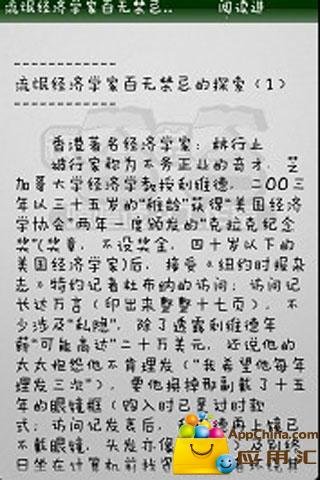 流氓经济学家百无禁忌.. 阅读进
------------
流氓经济学家百无禁忌的探索（1）
------------
香港著名经济学家：林行止
被行家称为不务正业的奇才，芝
加哥大学经济学教授利维德，二00三
年以三十五岁的“稚龄”获得“美国经济
学协会”两年一度颁发的“克拉克纪念
奖”(奖章，不设奖金，四十岁以下的
美国经济学家)后，接受《纽约时报杂
志》特约记者杜布纳的访问；访问记
长达万言（印出来整整十七页），不
少涉及“私隐”，除了透露利维德年
薪“可能高达”二十万美元，还说他的
太太抱怨他不肯理发（“我希望他每年
理发三次”），要他摒掉那副戴了十五
年的眼镜框（购入时已是过时款
式；访问记发表后，利维德再上镜已
不戴眼镜，头发亦像
日坐在计算机前找资
AppChina.com
应用汇